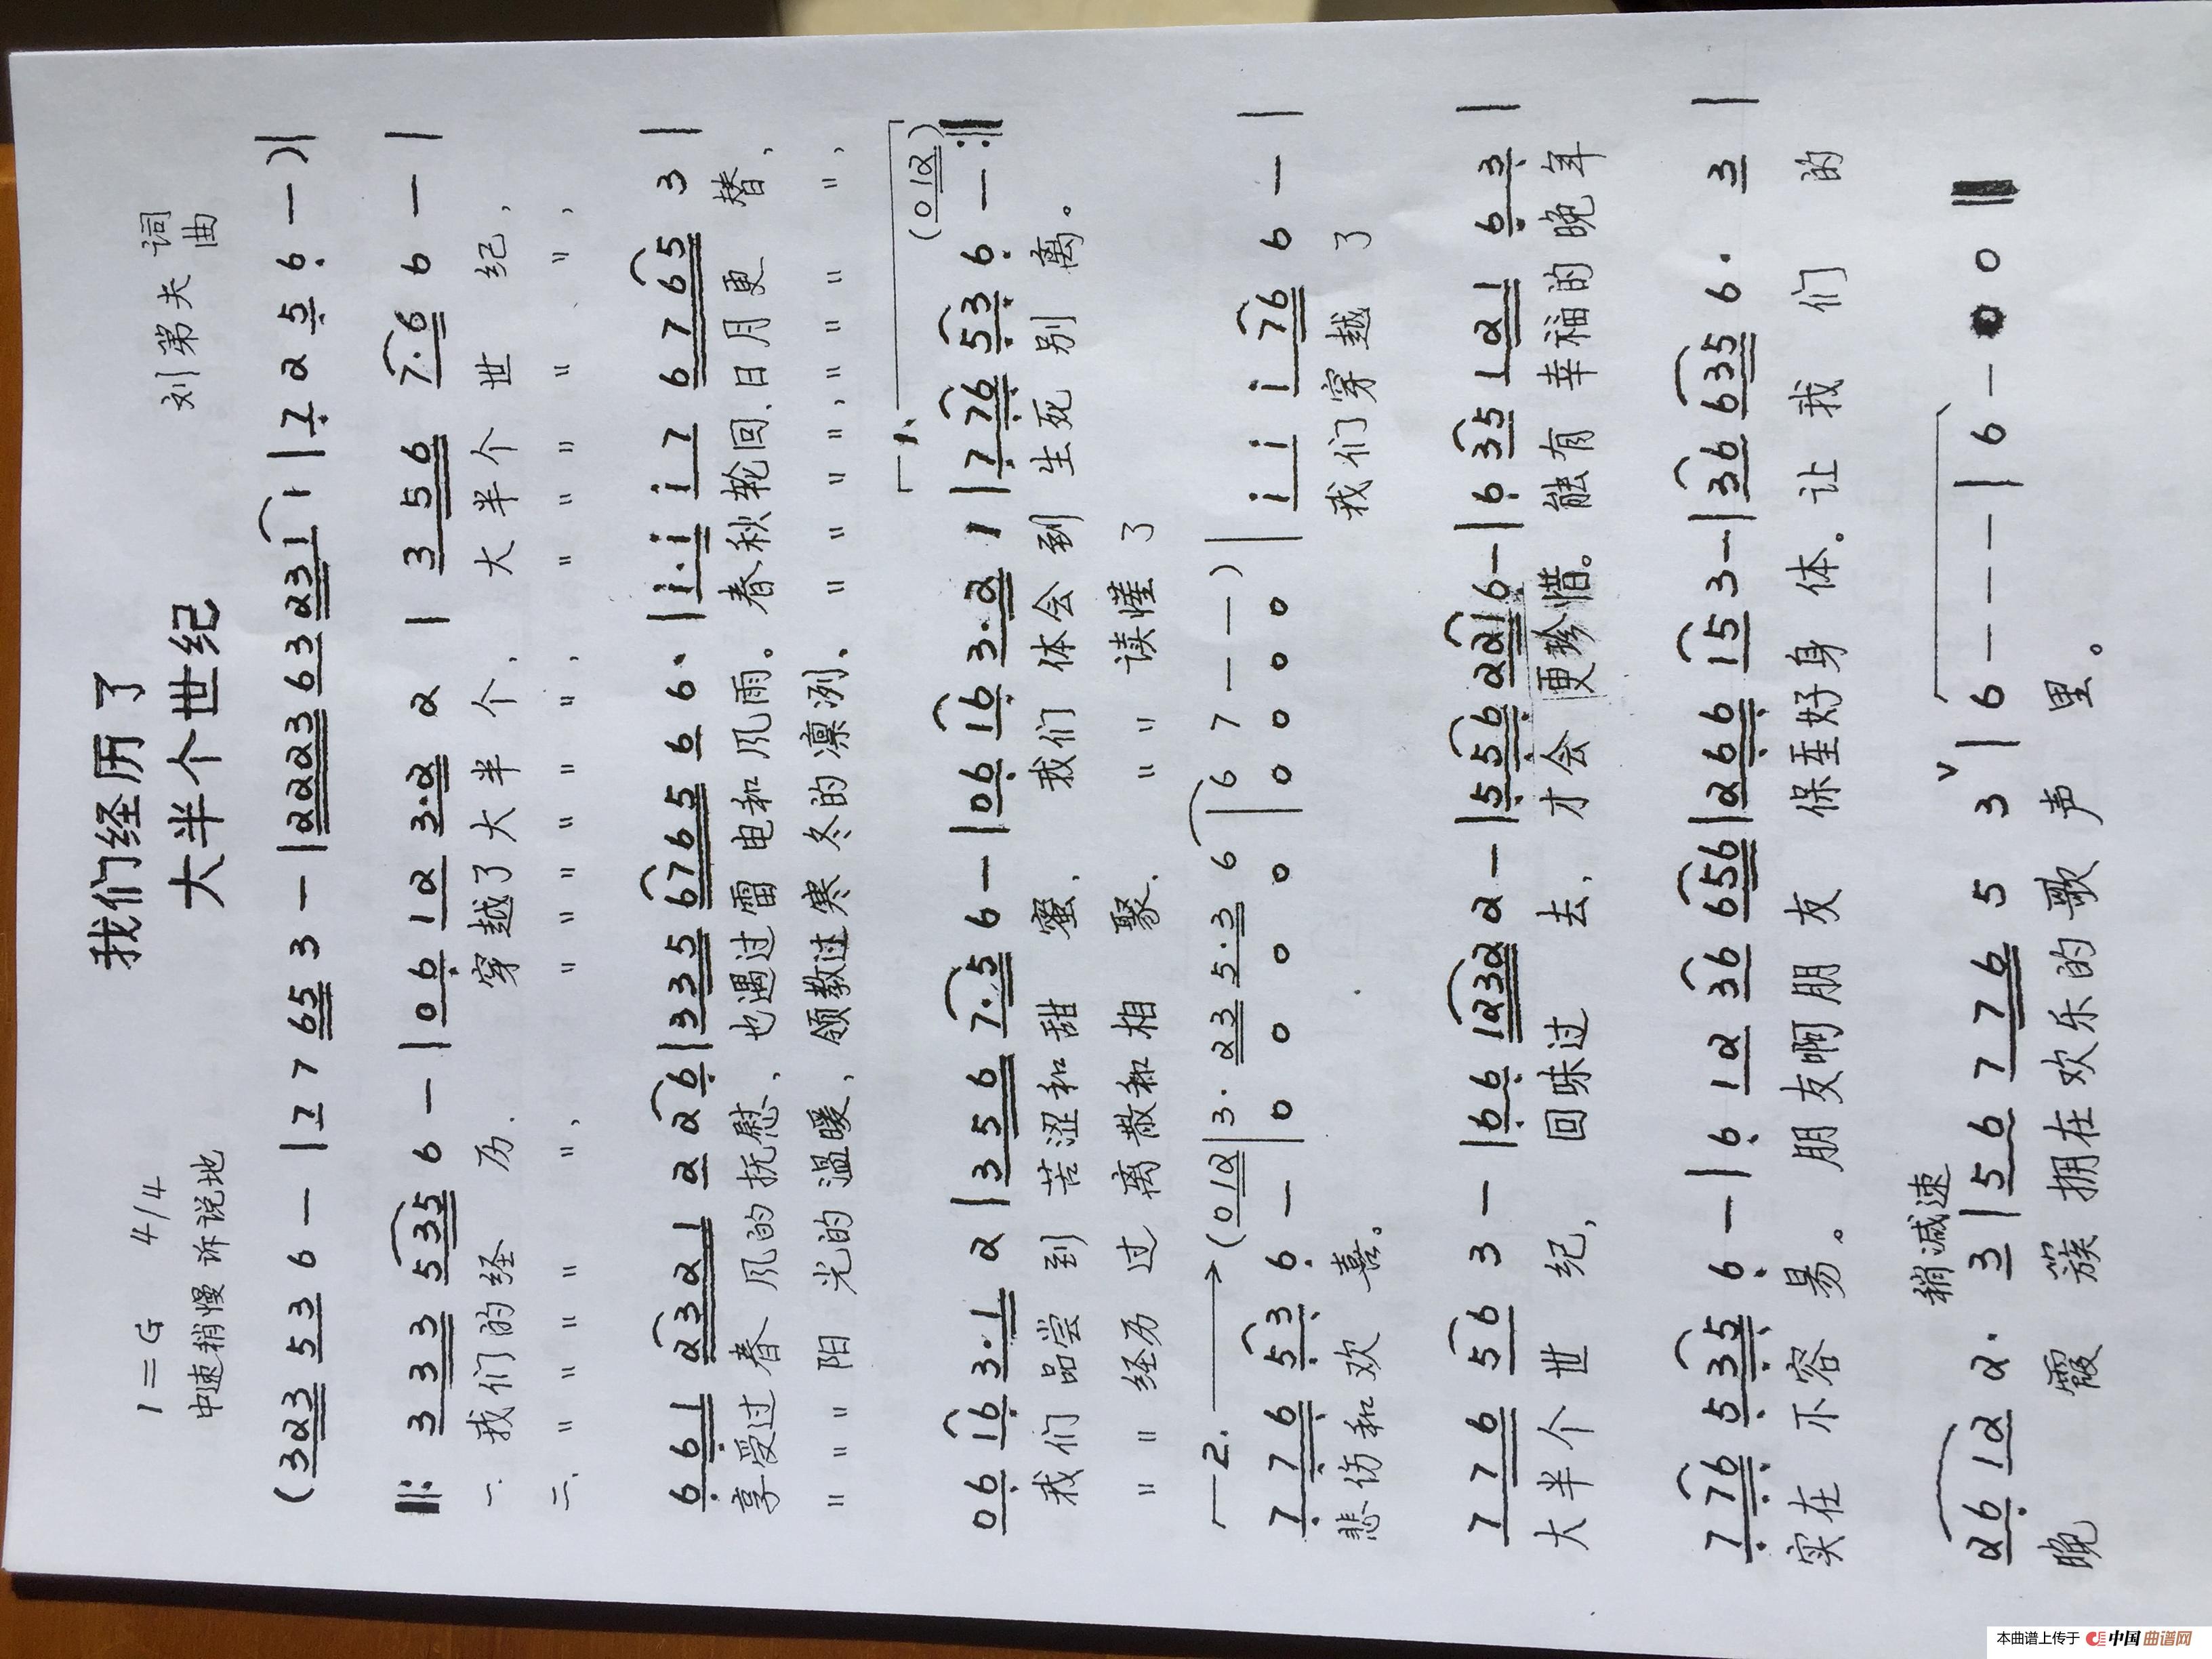 我们经历了
大半个世纪
1=G 4/4
刘第夫 词
曲
中速稍慢 诉说地
(323 53 6 — | 7 7 65 3 — | 2223 63 231 1 | 7 2 5 6 — )|
‖: 3 3 3 535 6 — | 06 12 3·2 2 | 3 56 7·6 6 — |
一. 我们的经 历. 穿越了大半 个, 大半个 世 纪,
二. " " " " ", " " " " " ", " " " " ",
6 61 2321 2 26 | 335 6765 6 6· | i·i i 7 6 765 3 |
享受过春 风的抚慰, 也遇过雷 电和风雨。春秋轮回, 日月更 替,
" " " 阳 光的温暖, 领教过寒 冬的凛冽、 " " " ", " " " ",
1. (012)
06 16 3·1 2 | 3 5 6 7·5 6 — | 06 16 3·2 1 | 7 76 53 6 — :‖
我们 品尝 到 苦涩和甜 蜜, 我们 体会 到 生死 别 离。
" " 经历 过 离散和相 聚, " " 读懂 了
2. (012 | 3· 23 5·3 6 | 6 7 — — )
7 76 53 6 — | 0 0 0 0 | 0 0 0 0 | i i i 76 6 — |
悲伤和欢 喜。 我们穿越 了
7 76 56 3 — | 66 1232 2 — | 5 556 2216 — | 6 35 121 63 |
大半个 世 纪, 回味过 去, 才会 更珍惜。 能有 幸福的 晚年
7 76 535 6 — | 6 12 36 656 | 266 15 3 — | 36 635 6· 3 |
实在 不容 易。 朋友啊朋 友 保重好身 体。让 我 们 的
稍减速
26 12 2· 3 | 56 7 76 5 3 ∨ | 6 — — — | 6 — 0 0 ‖
晚 霞 簇 拥在欢乐的歌 声 里。
本曲谱上传于 中国曲谱网